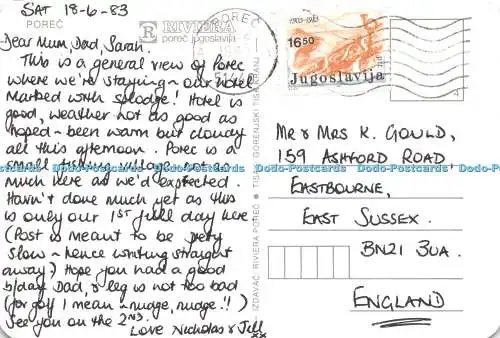 SAT 18-6-83
POREČ
RIVIERA
poreč jugoslavija
Dear Mum, Dad, Sarah.
This is a general view of Porec
where we're staying ~ our hotel
Marked with splodge! Hotel is
good, weather not as good as
hoped ~ been warm but cloudy
all this afternoon. Porec is a
small fishing village not as
much here as we'd expected.
Havn't done much yet as this
is only our 1ST full day here
(Post is meant to be pretty
slow ~ hence writing straight
away) Hope you had a good
b/day Dad, & leg is not too bad
(for golf I mean ~ nudge, nudge!!)
See you on the 2ND.
Love Nicholas & Jill
xx
IZDAVAČ RIVIERA POREČ
GORENJSKI TISK KRANJ
POREČ
51440
1903-1983
16.50
Jugoslavija
Mr & Mrs K. GOULD,
159 ASHFORD ROAD,
EASTBOURNE,
EAST SUSSEX.
BN21 3UA.
ENGLAND
Dodo-Postcards Dodo-Postcards Dodo-Postcards Dodo-Postcards Dodo-Postcards